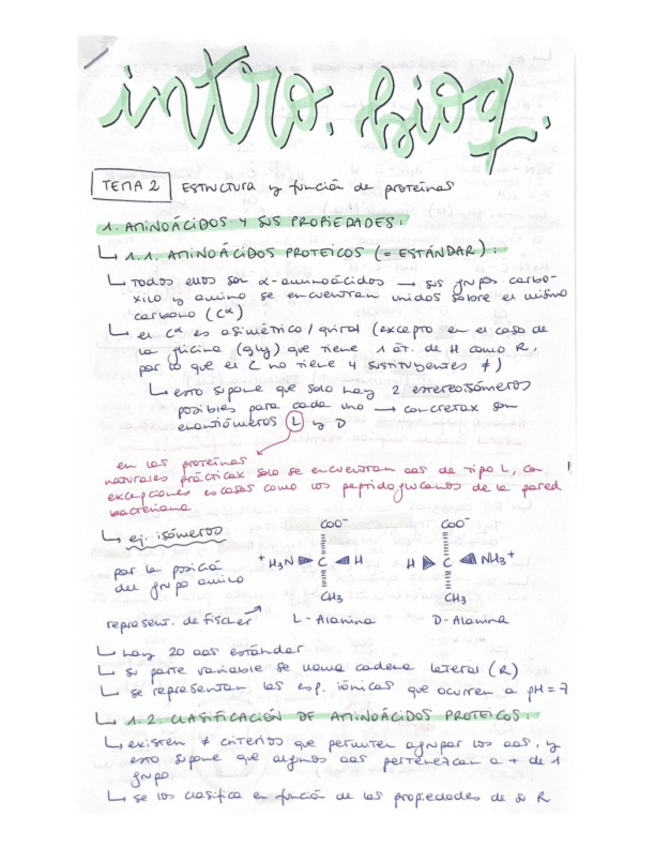 intro. bioq.
TEMA 2 Estructura y función de proteínas
1. AMINOÁCIDOS Y SUS PROPIEDADES:
↳ 1.1. AMINOÁCIDOS PROTEICOS (= ESTÁNDAR):
↳ Todos ellos son α-aminoácidos → sus grupos carbo-
xilo y amino se encuentran unidos sobre el mismo
carbono (Cα)
↳ el Cα es asimétrico / quiral (excepto en el caso de
la glicina (gly) que tiene 1 át. de H como R,
por lo que el C no tiene 4 sustituyentes ≠)
↳ esto supone que solo hay 2 estereoisómeros
posibles para cada uno → concretax son
enantiómeros L y D
en las proteínas
naturales prácticax solo se encuentran aas de tipo L, con
excepciones escasas como los peptidoglucanos de la pared
bacteriana
↳ ej. isómeros
por la posición
del grupo amino
COO⁻ COO⁻
⁺H₃N C H H C NH₃⁺
CH₃ CH₃
represent. de fischer L-Alanina D-Alanina
↳ hay 20 aas estándar
↳ su parte variable se llama cadena lateral (R)
↳ se representan las esp. iónicas que ocurren a pH = 7
↳ 1.2. CLASIFICACIÓN DE AMINOÁCIDOS PROTEICOS:
↳ existen ≠ criterios que permiten agrupar los aas, y
esto supone que algunos aas pertenezcan a + de 1
grupo
↳ se los clasifica en función de las propiedades de su R